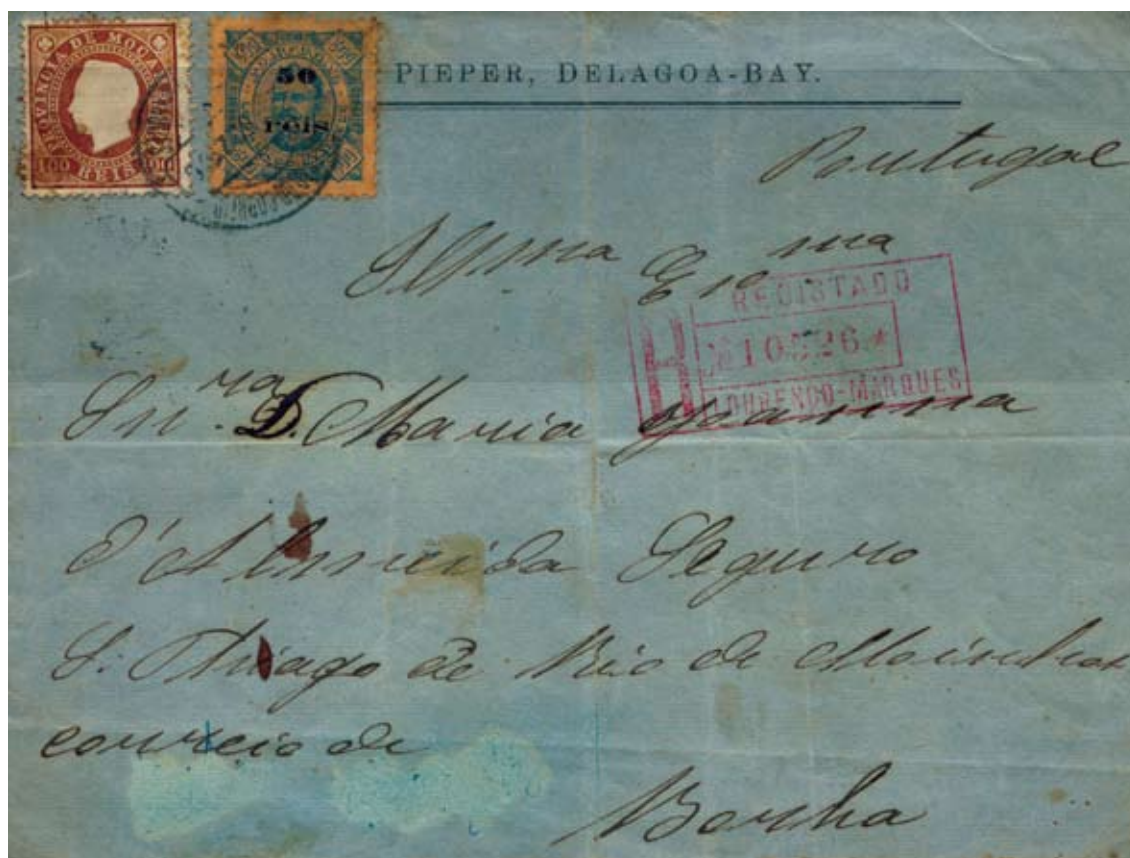 PROVINCIA DE MOÇAMBIQUE
100 REIS 100
50
reis
PIEPER, DELAGOA-BAY.
Portugal
Illma Exma
REGISTADO
R
LOURENÇO-MARQUES
Snra D. Maria Joanna
d'Almeida Seguro
S. Thiago de Rio de Moinhos
correio de
Borba